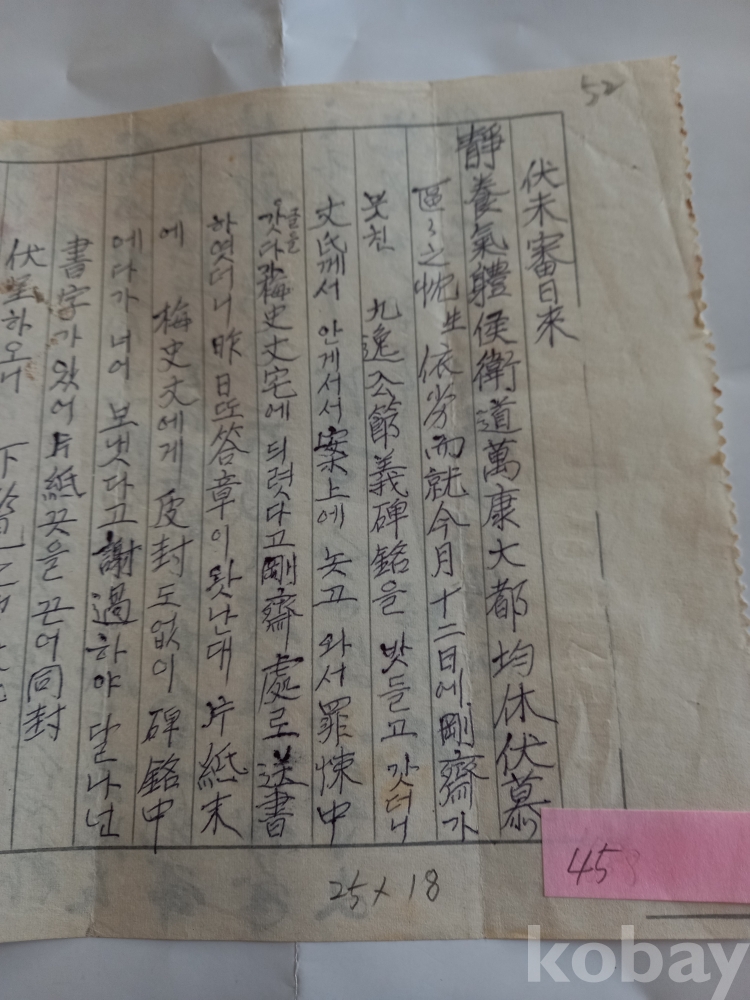 52
伏未審日來
靜養氣體侯衛道萬康大都均休伏慕
區々之忱生依劣而就今月十二日에剛齋가
못친 九逸公節義碑銘을 밧들고 갓더니
丈氏께서 안게서서 案上에 놋고 와서 罪悚中
글을 갓다가 梅史丈宅에 듸렷다고 剛齋處로 送書
하엿더니 昨日또答章이왓난대 片紙末
에 梅史丈에게 皮封도없이 碑銘中
에다가 너어 보냇다고 謝過하야 달나넌
書字가 있어 片紙끗을 끈어 同封
伏望하오니 下
25×18
45
kobay